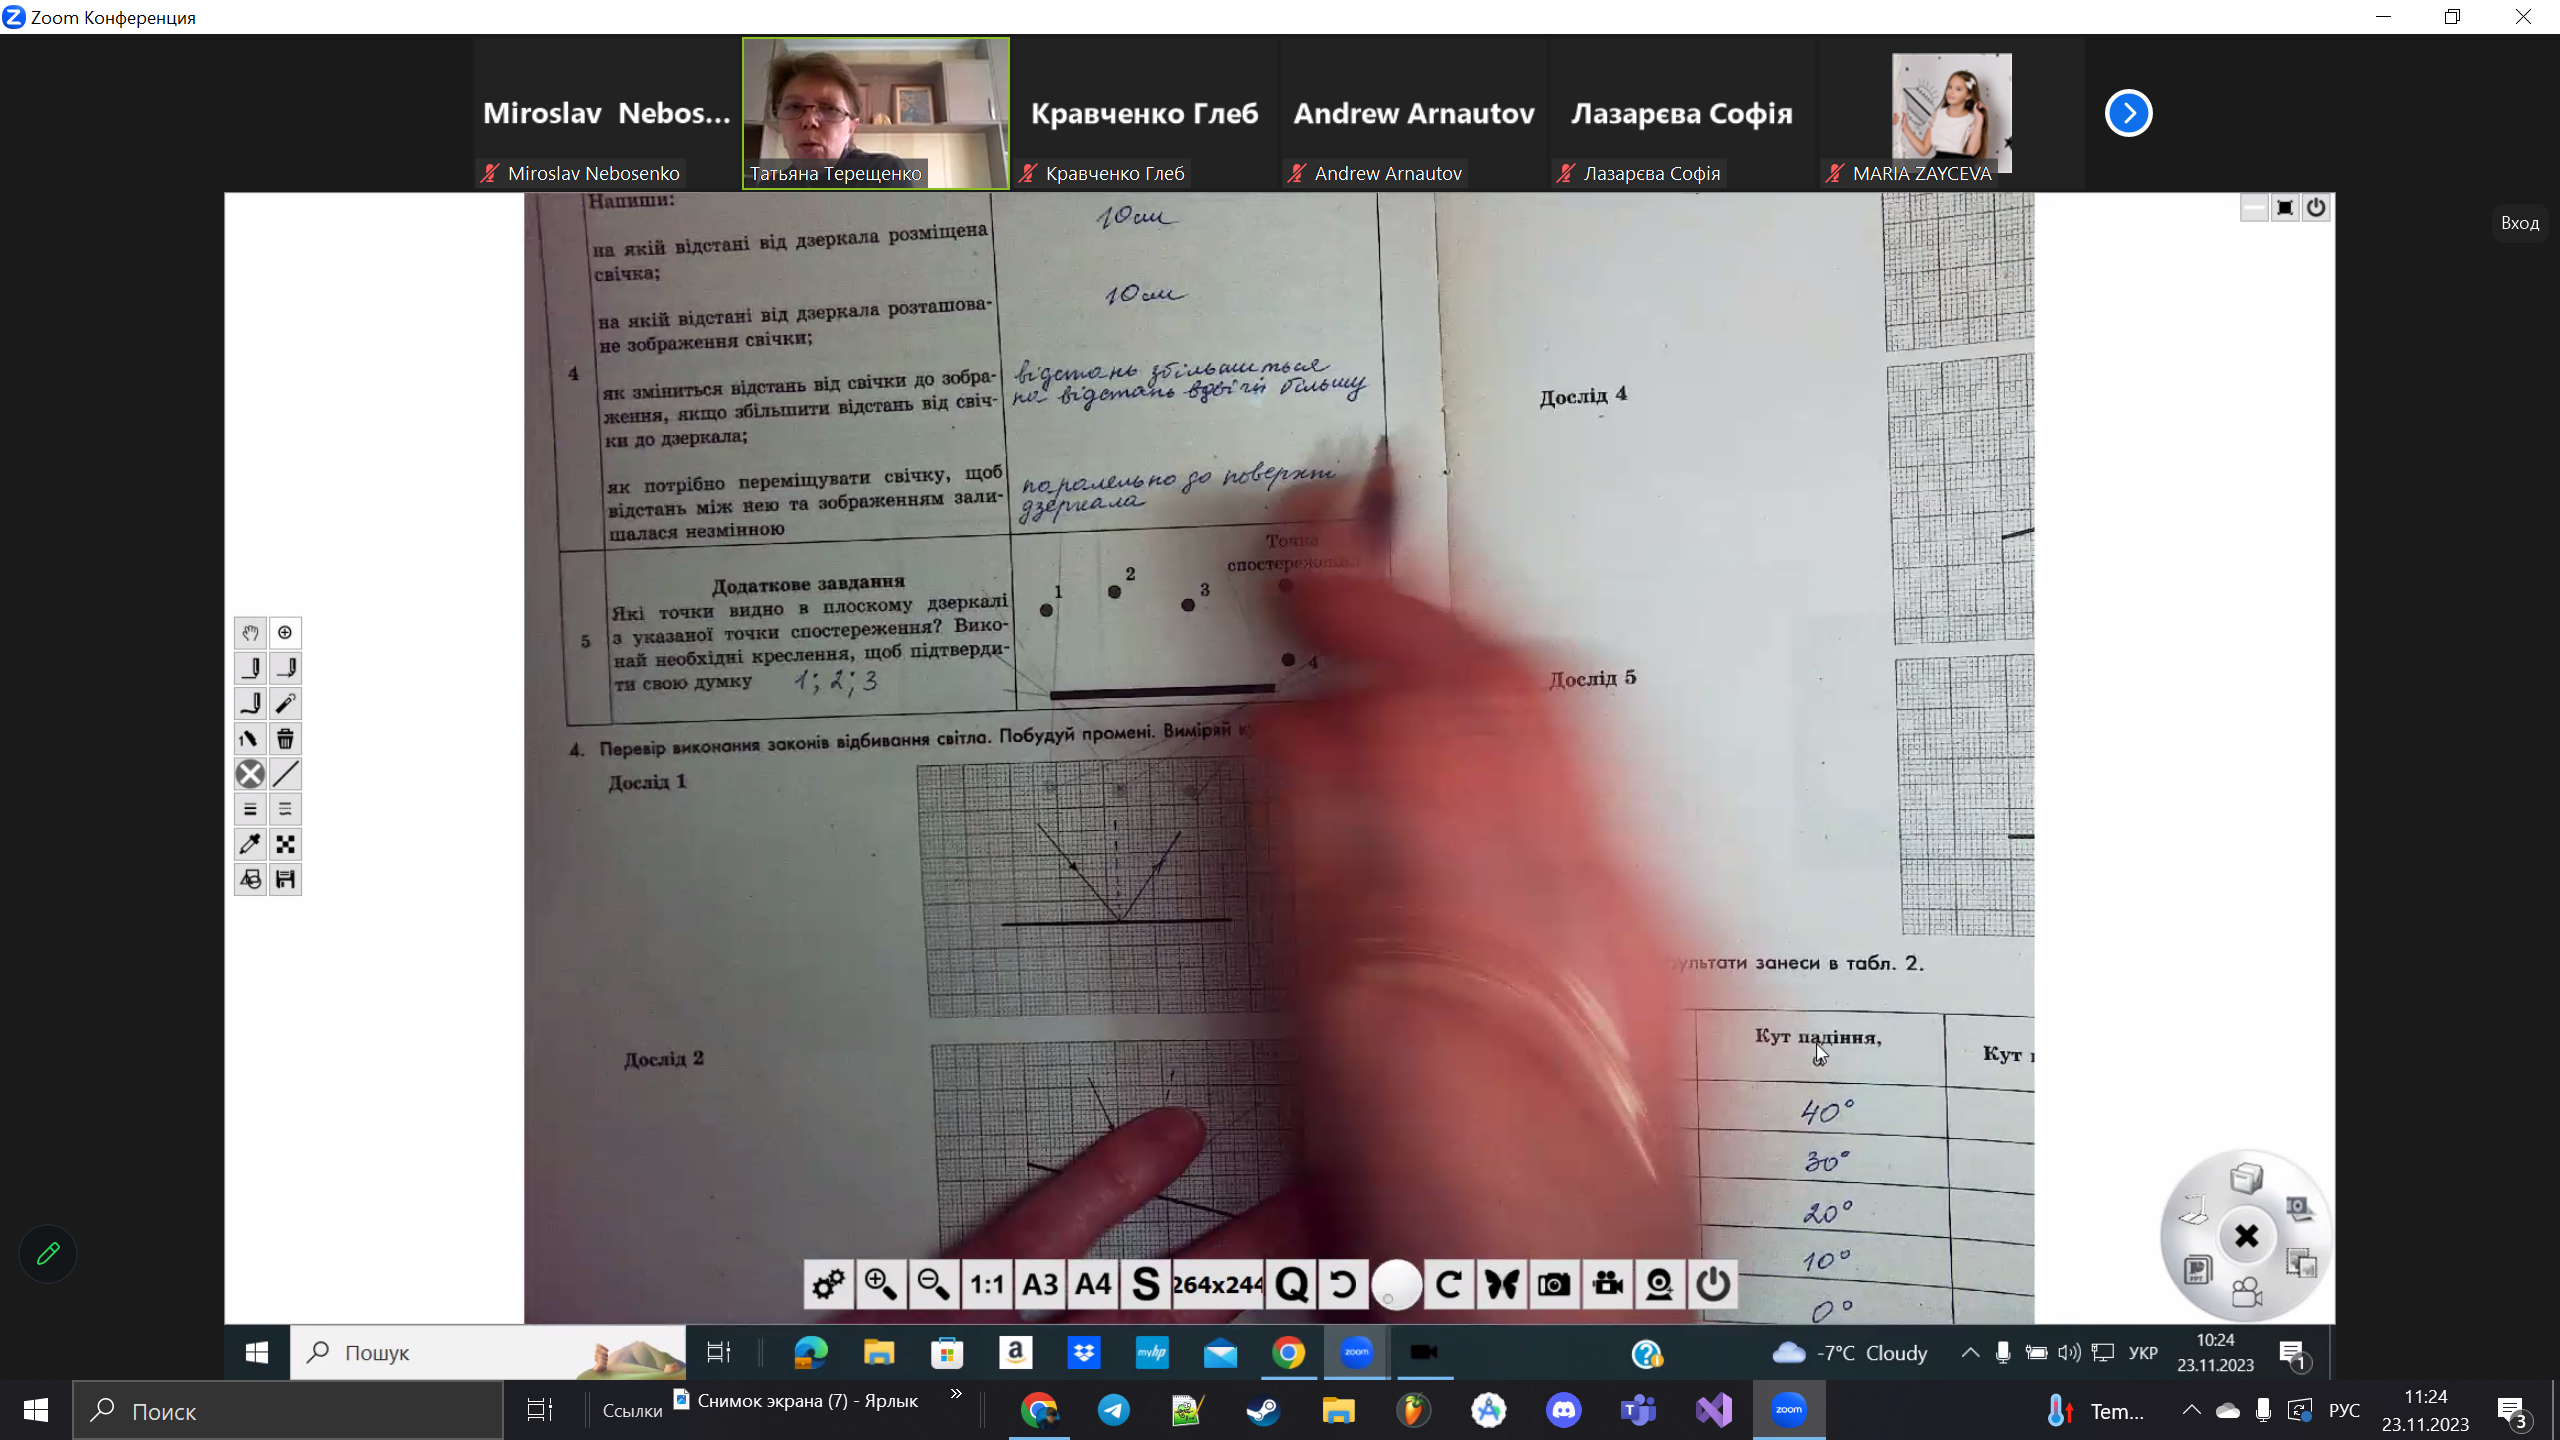 Zoom Конференция
Miroslav Nebos...
Кравченко Глеб
Andrew Arnautov
Лазарєва Софія
Miroslav Nebosenko
Татьяна Терещенко
Кравченко Глеб
Andrew Arnautov
Лазарєва Софія
MARIA ZAYCEVA
Вход
Напиши:
на якій відстані від дзеркала розміщена
свічка;
10см
на якій відстані від дзеркала розташова-
не зображення свічки;
10см
4
як зміниться відстань від свічки до зобра-
ження, якщо збільшити відстань від свіч-
ки до дзеркала;
відстань збільшиться
на відстань вдвічі більшу
як потрібно переміщувати свічку, щоб
відстань між нею та зображенням зали-
шалася незмінною
паралельно до поверхні
дзеркала
5
Додаткове завдання
Які точки видно в плоскому дзеркалі
з указаної точки спостереження? Вико-
най необхідні креслення, щоб підтверди-
ти свою думку 1; 2; 3
1
2
3
Точка
спостереження
4
4. Перевір виконання законів відбивання світла. Побудуй промені. Виміряй
Дослід 1
Дослід 2
Дослід 4
Дослід 5
занеси в табл. 2.
Кут падіння,
Кут
40°
30°
20°
10°
0°
1:1
A3
A4
S
264x244
Q
PPT
Пошук
a
myhp
zoom
-7°C Cloudy
УКР
10:24
23.11.2023
1
Поиск
Ссылки
Снимок экрана (7) - Ярлык
»
zoom
Tem...
РУС
11:24
23.11.2023
3